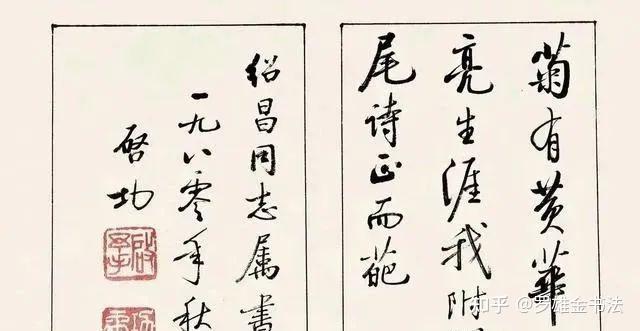 菊有黄華
亮生涯我附
尾诗正而葩
绍昌同志属書
一九八零年秋
启功
知乎 @罗雄金书法